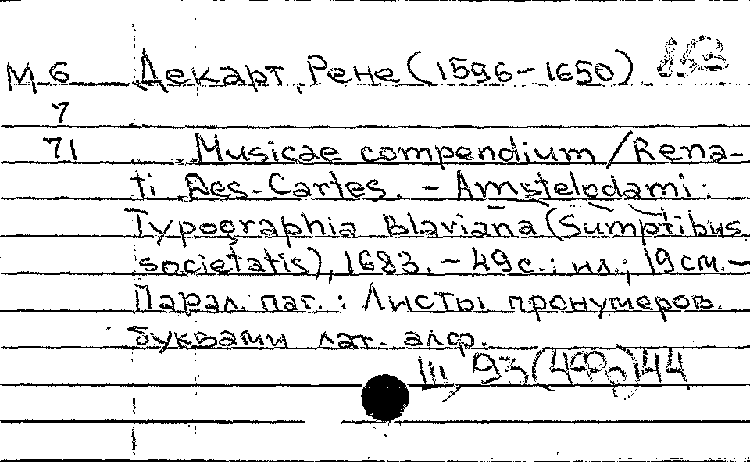 М 6 Декарт, Рене (1596-1650)
7
71 Musicae compendium / Rena-
ti Des-Cartes. - Amstelodami:
Typographia Blaviana (Sumptibus
societatis), 1683. - 49 с.: ил.; 19 см. -
Парал. паг.: Листы пронумеров.
буквами лат. алф.